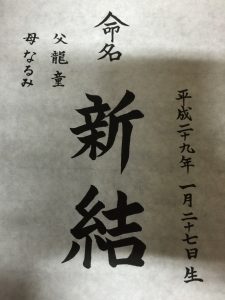 命名
平成二十九年 一月二十七日生
新結
父 龍童
母 なるみ